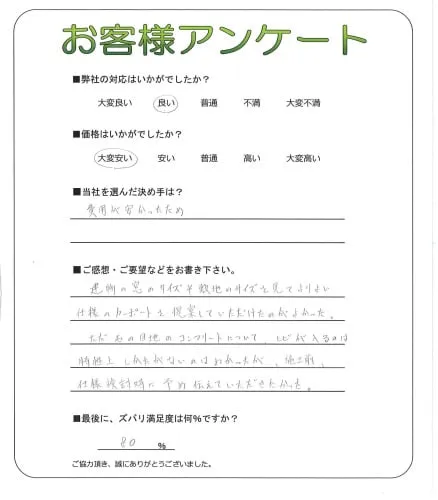 お客様アンケート
■弊社の対応はいかがでしたか？
大変良い 良い 普通 不満 大変不満
■価格はいかがでしたか？
大変安い 安い 普通 高い 大変高い
■当社を選んだ決め手は？
費用が安かったため
■ご感想・ご要望などをお書き下さい。
建物の窓のサイズや敷地のサイズを見てよりよい
仕様のカーポートを提案していただけたのがよかった。
ただ の目地のコンクリートについて、ヒビが入るのは
特性上しかたがないのはわかったが、施工前、
仕様検討時に予め伝えていただきたかった。
■最後に、ズバリ満足度は何％ですか？
80 %
ご協力頂き、誠にありがとうございました。